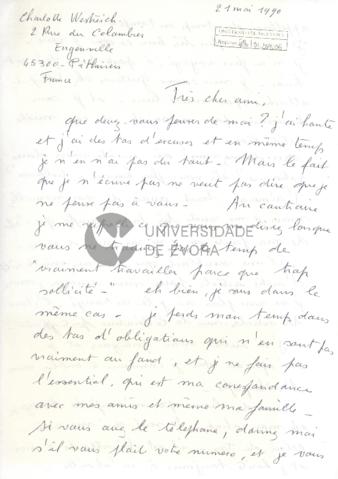 Charlotte
2 Rue des Colombes
Engenville
45300 - Pithiviers
France
21 mai 1990
Très cher ami,
que devez-vous penser de moi ? j'ai honte
et j'ai des tas d'excuses et en même temps
je n'en n'ai pas du tout - Mais le fait
que je n'écrive pas ne veut pas dire que je
ne pense pas à vous - Au contraire
je me lorsque
vous temps de
UNIVERSIDADE
DE ÉVORA
"vraiment travailler parce que trop
sollicité -" eh bien, je suis dans le
même cas - je perds mon temps dans
des tas d'obligations qui n'en sont pas
vraiment au fond, et je ne fais pas
l'essentiel, qui est ma correspondance
avec mes amis et même ma famille -
Si vous avez le téléphone, donnez moi
s'il vous plaît votre numéro, et je vous